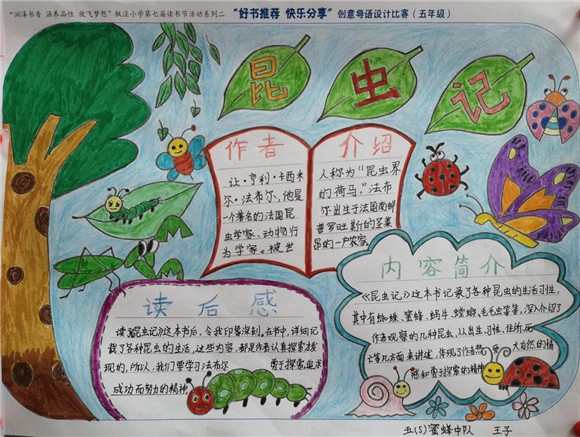 "润泽书香 涵养品性 放飞梦想"枫泾小学第七届读书节活动系列二 "好书推荐 快乐分享"创意导语设计比赛（五年级）
昆虫记
作者介绍
让·亨利·卡西米
尔·法布尔，他是
一个著名的法国昆
虫学家、动物行
为学家。被世
人称为"昆虫界
的荷马，"法布
尔出生于法国南部
普罗旺斯的圣莱
昂的一户农家
内容简介
《昆虫记》这本书记录了各种昆虫的生活习性，
其中有蜘蛛、蜜蜂、蜗牛、螳螂、毛毛虫等等，深入介绍了
作者观察的几种昆虫，从出生、习性、住所、而
七等几方面来讲述，体现了作者热 大自然的情
感和勇于探索的精神
读后感
读《昆虫记》这本书后，令我印象深刻，在书中，详细记
载了各种昆虫的生活，这些内容，都是作者认真探索发
现的，所以，我们要学习法布尔 勇于探索，追求
成功而努力的精神
五(5)蜜蜂中队 王子